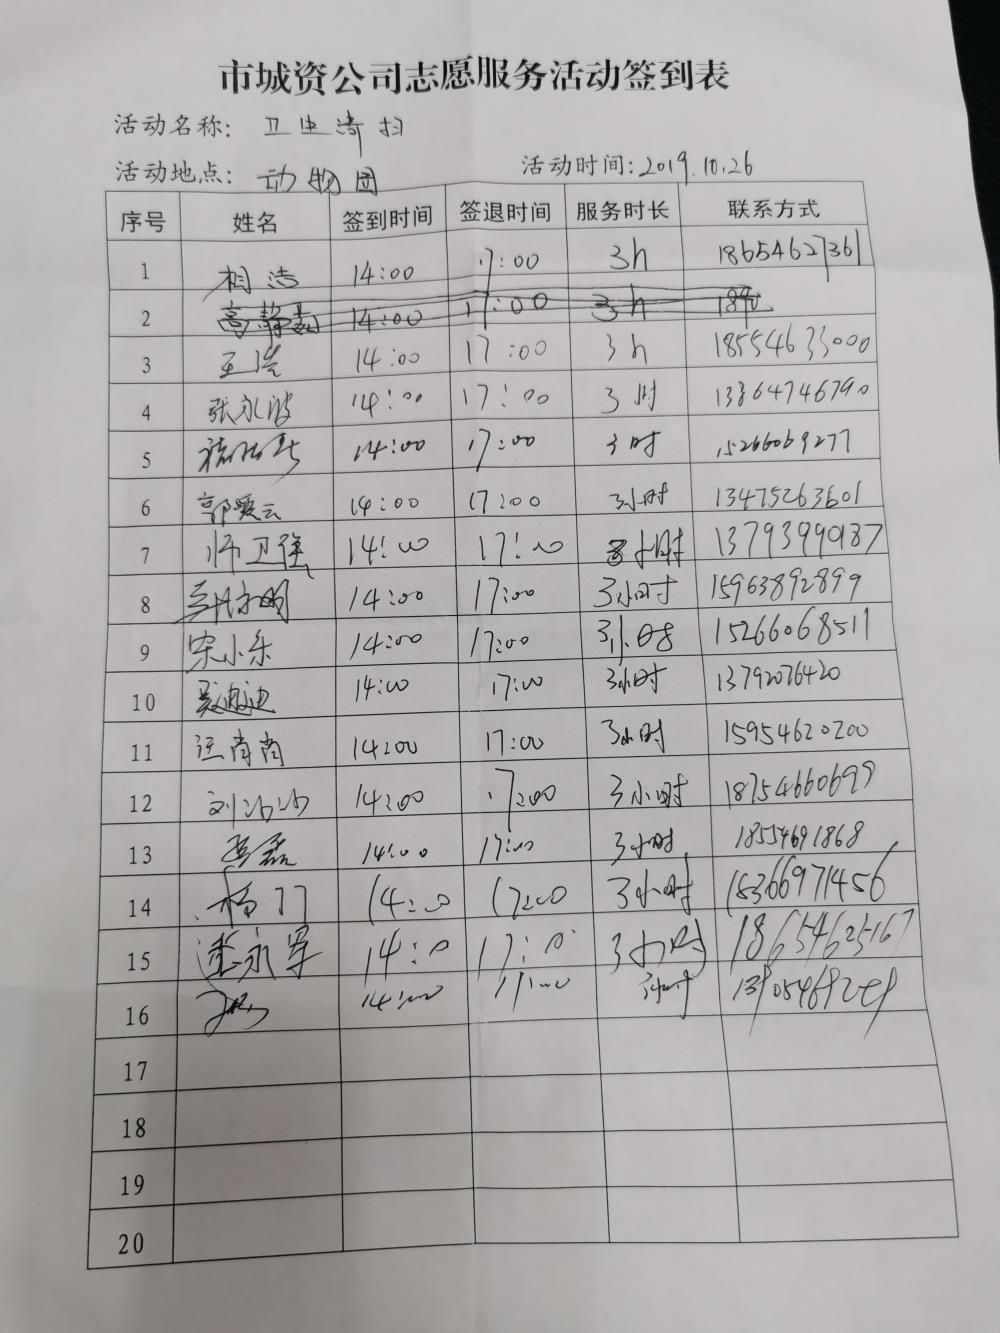 市城资公司志愿服务活动签到表
活动名称: 卫生清扫
活动地点: 动物园 活动时间: 2019.10.26
序号 姓名 签到时间 签退时间 服务时长 联系方式
1 相浩 14:00 17:00 3h 18654627361
2 14:00 17:00 3h
3 王浩 14:00 17:00 3h 18554633000
4 张永波 14:00 17:00 3时 13864746790
5 14:00 17:00 3时 15266069277
6 郭爱云 14:00 17:00 3小时 13475263601
7 师卫强 14:00 17:00 3小时 13793990187
8 14:00 17:00 3小时 15963892899
9 宋小乐 14:00 17:00 3小时 15266068511
10 14:00 17:00 3小时 13792076420
11 汪肖肖 14:00 17:00 3小时 15954620200
12 刘沙沙 14:00 17:00 3小时 18754660699
13 14:00 17:00 3小时 18554691868
14 杨丁 14:00 17:00 3小时 18366971456
15 永军 14:0 17:0 3小时 18654625167
16 14:00 17:00
17
18
19
20